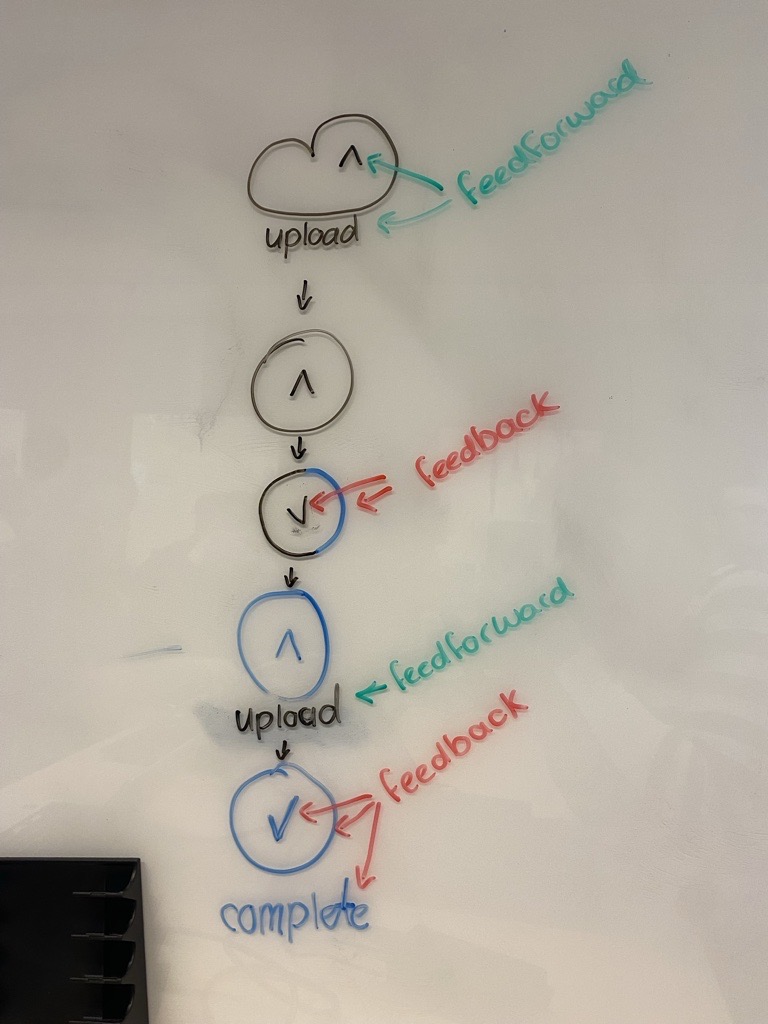 feedforward
upload
feedback
feedforward
upload
feedback
complete